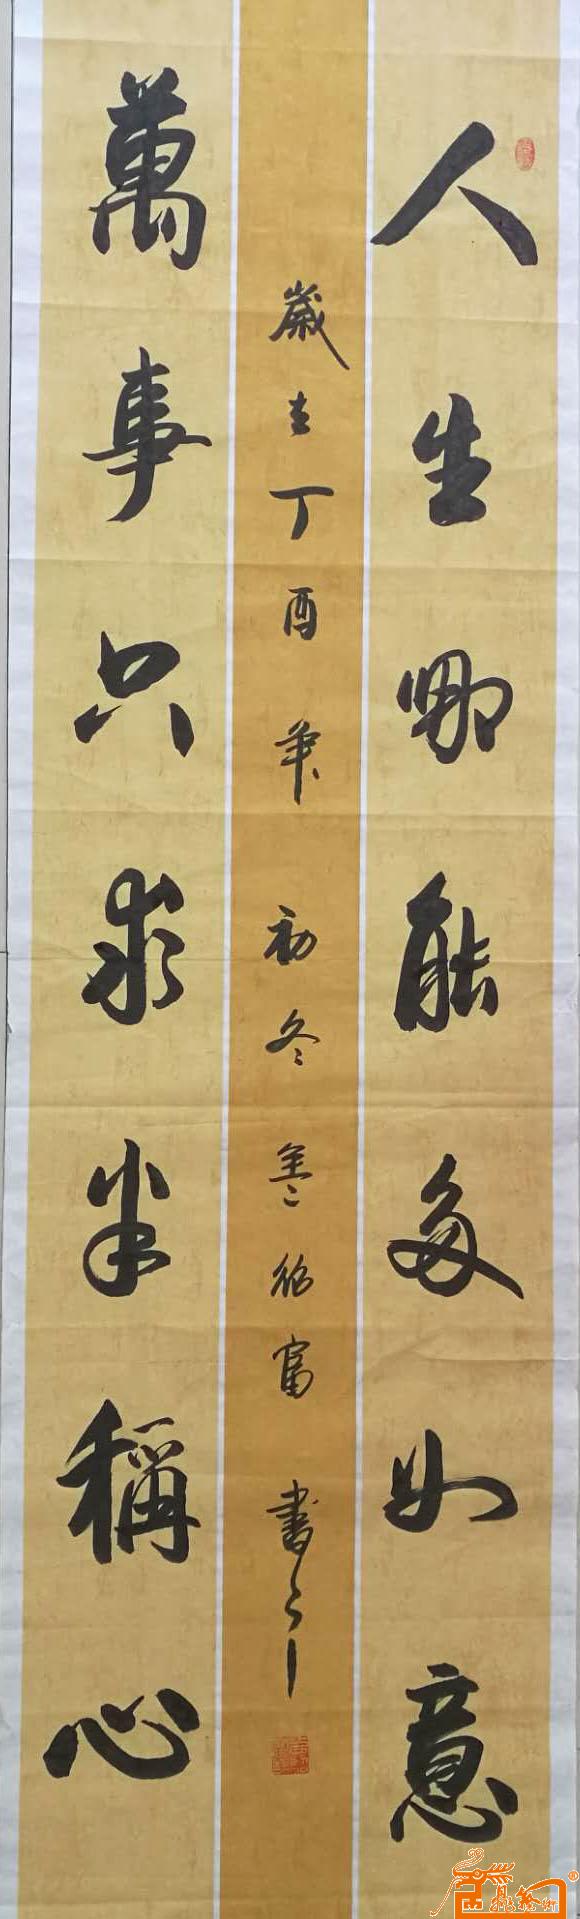 人生哪能多如意
萬事只求半稱心
歲在丁酉年初冬姜能富書